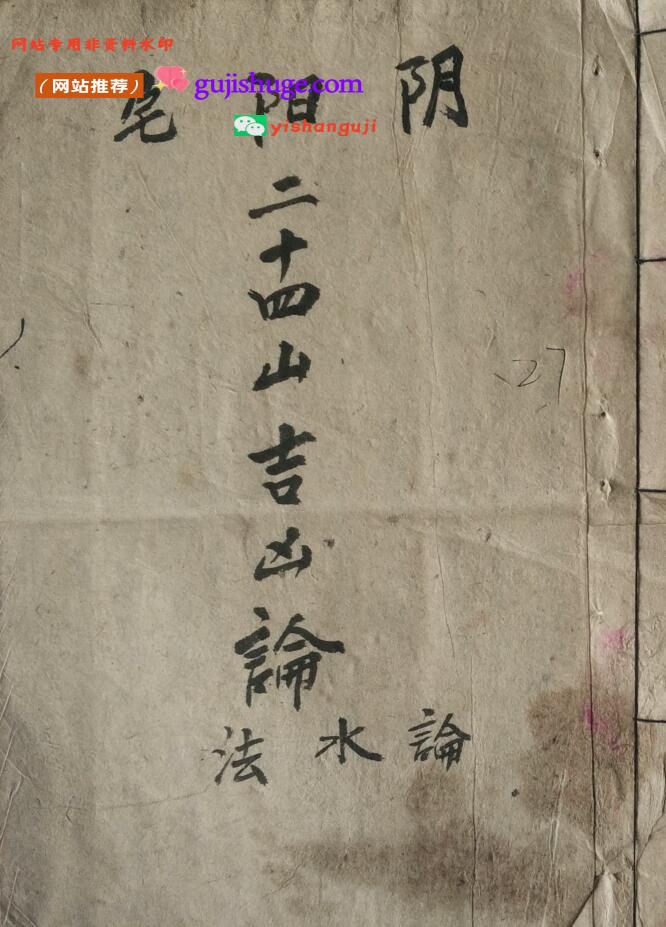 网站专用非资料水印
（网站推荐） gujishuge.com
yishanguji
阴阳宅
二十四山吉凶論
論水法
27